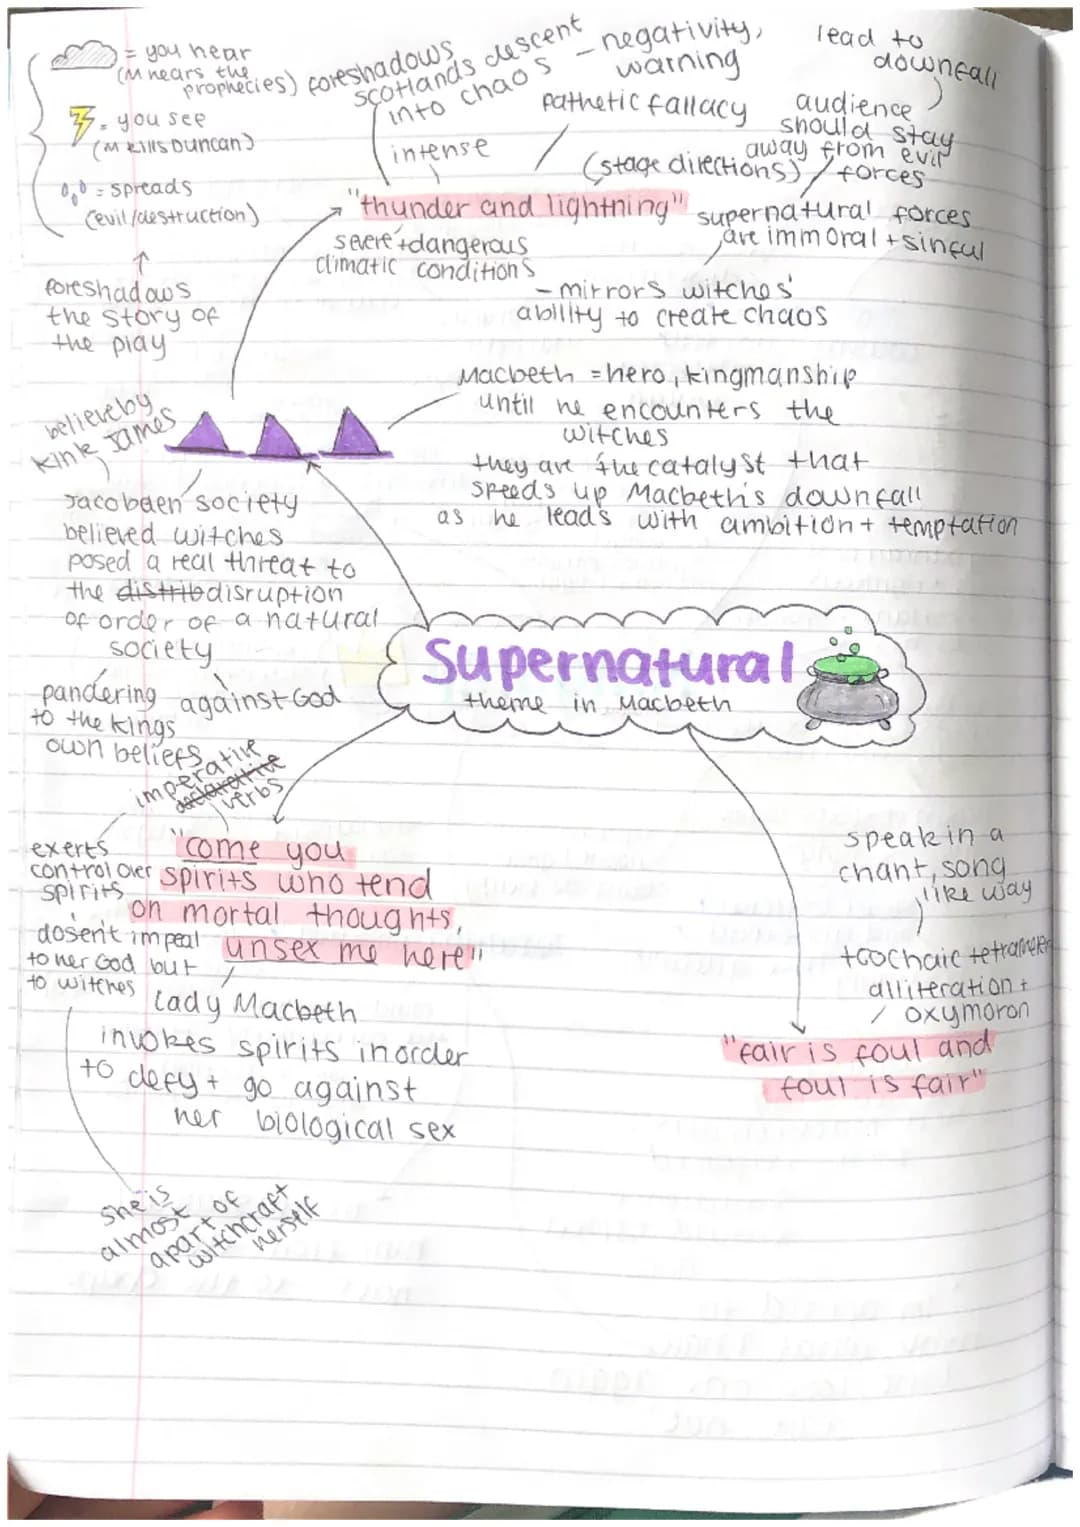 = you hear
(M hears the
prophecies)
= you see
(M kills Duncan)
= spreads
(evil/destruction)
foreshadows
the story of
the play
foreshadows
scotlands descent
into chaos
- negativity,
warning
intense
pathetic fallacy
(stage directions)
lead to
downfall
audience
should stay
away from evil
forces
"thunder and lightning"
severe + dangerous
climatic conditions
supernatural forces
are immoral + sinful
- mirrors witches'
ability to create chaos
Macbeth = hero, kingmanship
until he encounters the
witches
they are the catalyst that
speeds up Macbeth's downfall
as he leads with ambition + temptation
believe by
Kink James
Jacobaen society
believed witches
posed a real threat to
the distrib disruption
of order of a natural
society
pandering
to the kings
own beliefs
against God
Supernatural
theme in Macbeth
imperative
declarative
verbs
exerts
control over
spirits
dosen't impeal
to her God but
to witches
"come you
spirits who tend
on mortal thoughts,
unsex me here"
Lady Macbeth
invokes spirits in order
to defy + go against
her biological sex
she is
almost
apart of
witchcraft
herself
speak in a
chant, song
like way
trochaic tetrameter
alliteration +
oxymoron
"fair is foul and
foul is fair"